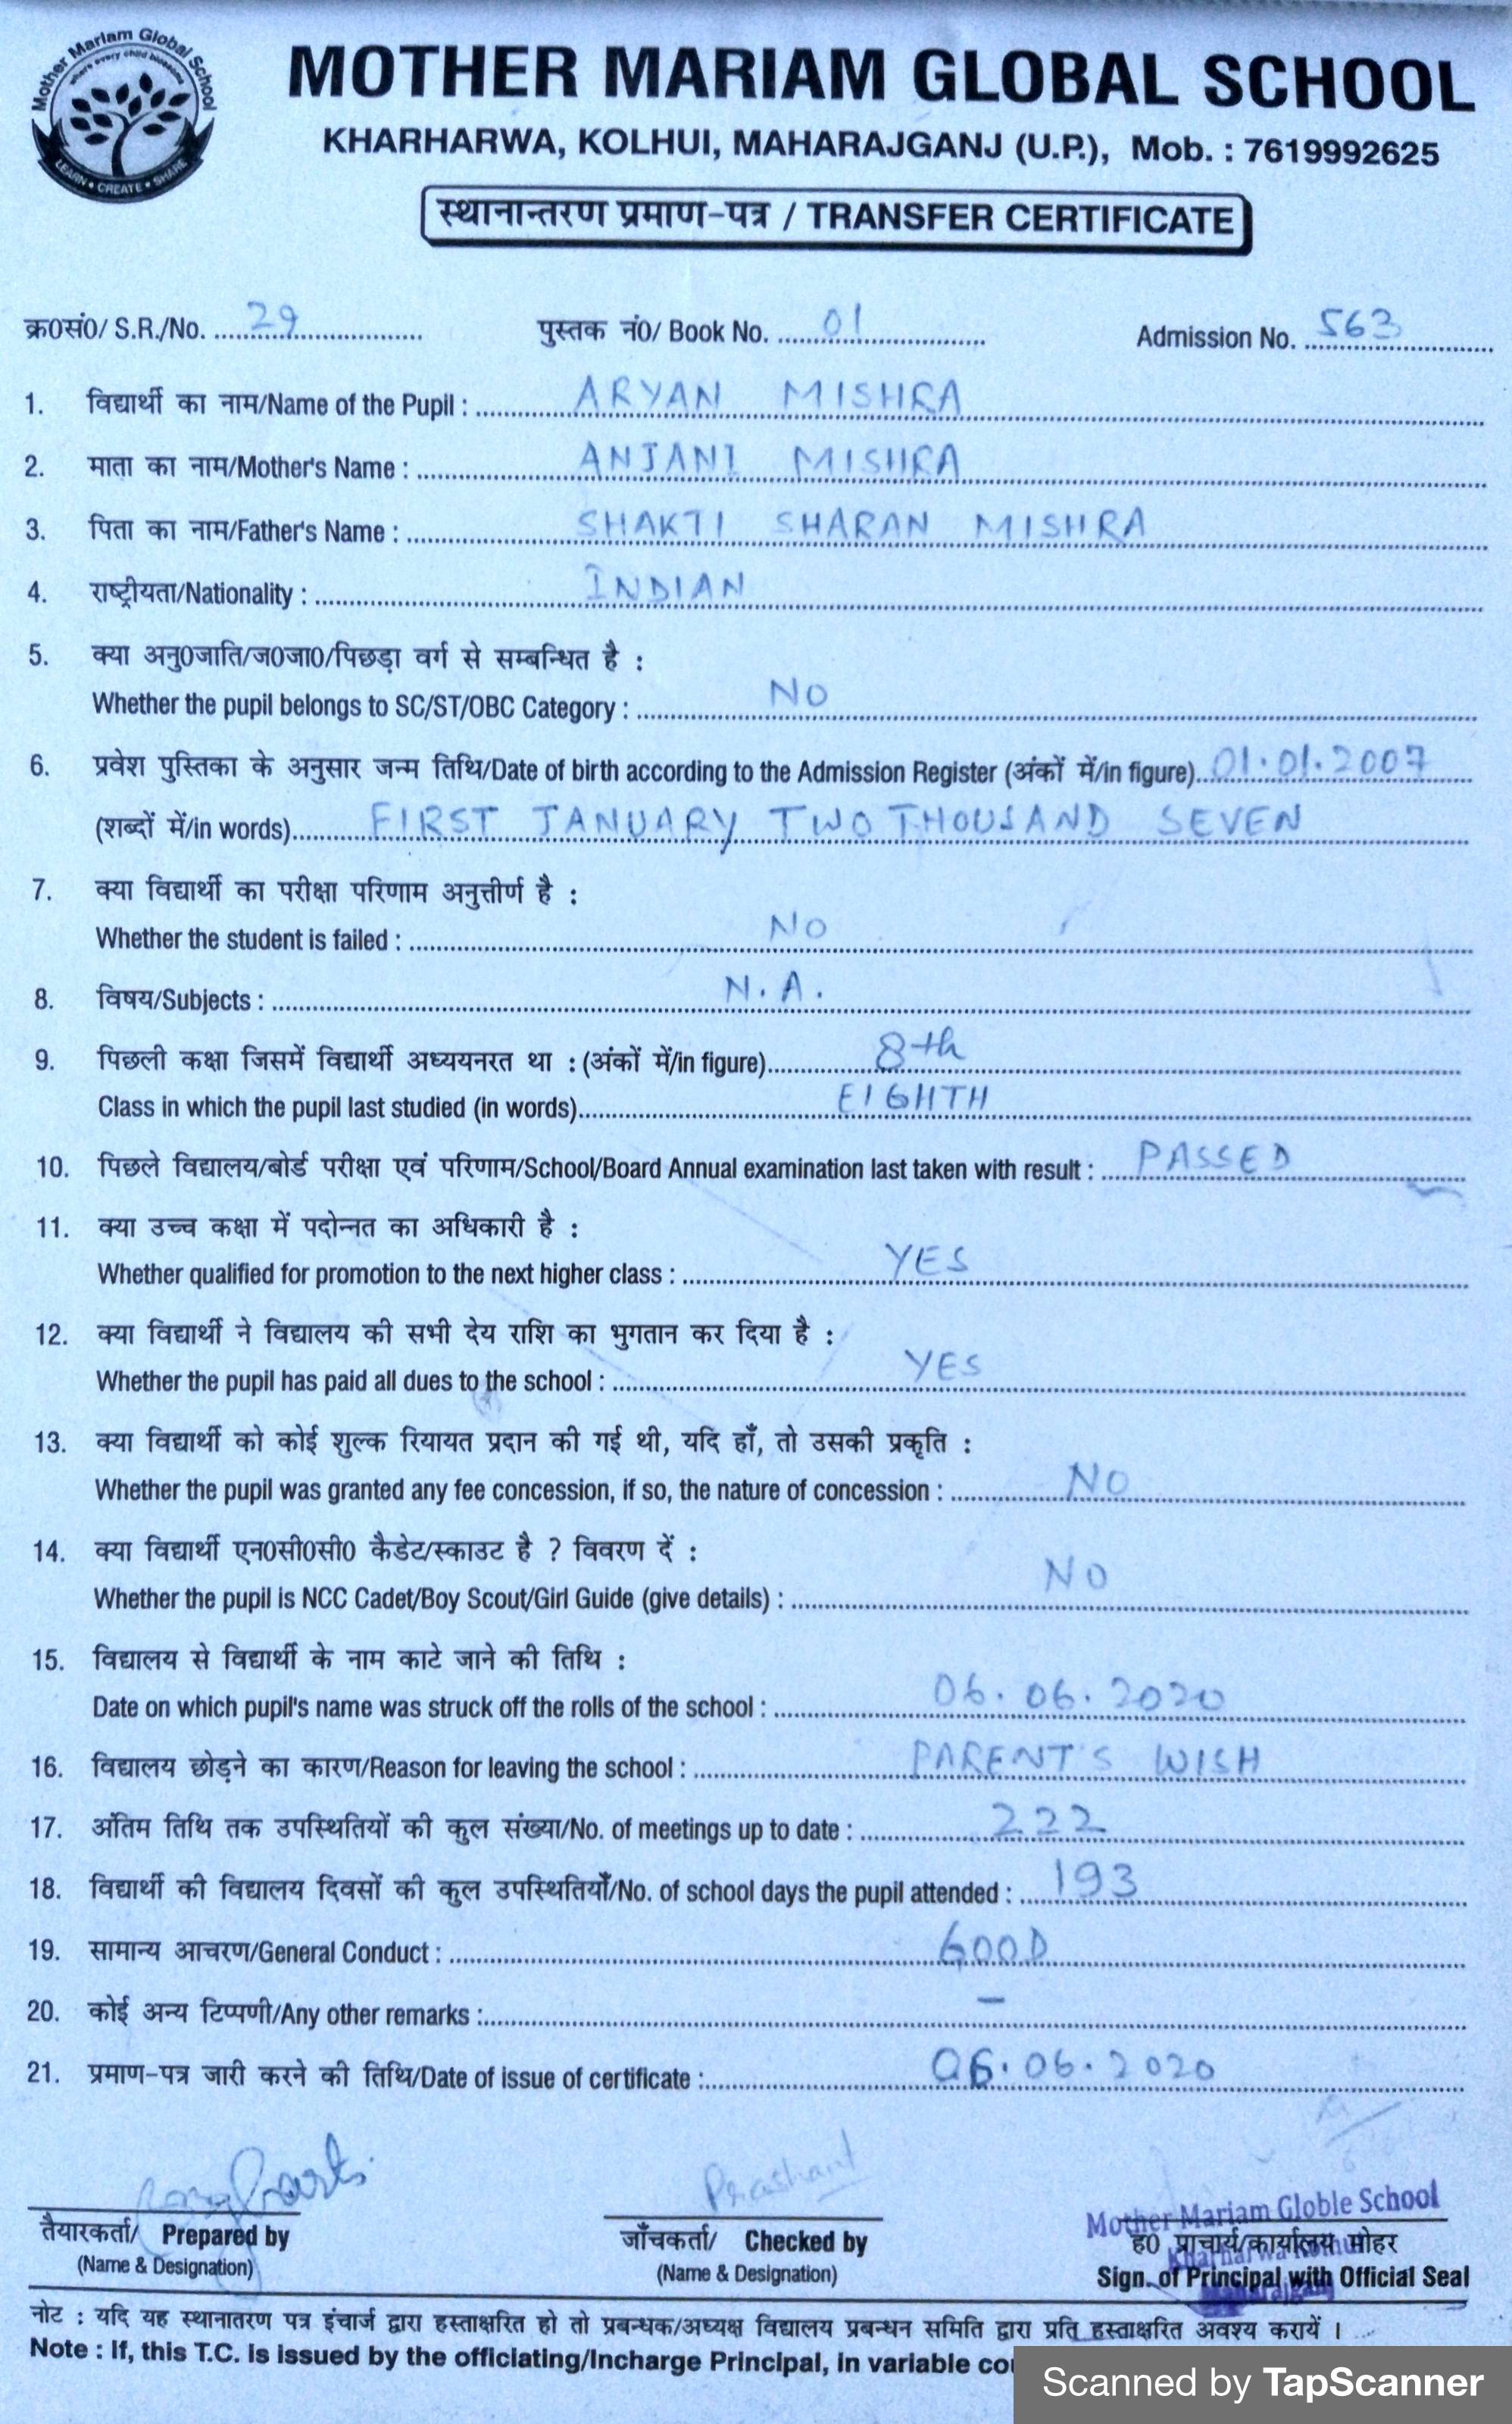 Mother Mariam Global School
where every child blossoms
LEARN • CREATE • SHARE
MOTHER MARIAM GLOBAL SCHOOL
KHARHARWA, KOLHUI, MAHARAJGANJ (U.P.), Mob. : 7619992625
स्थानान्तरण प्रमाण-पत्र / TRANSFER CERTIFICATE
क्र0सं0/ S.R./No. 29 पुस्तक नं0/ Book No. 01 Admission No. 563
1. विद्यार्थी का नाम/Name of the Pupil : ARYAN MISHRA
2. माता का नाम/Mother's Name : ANJANI MISHRA
3. पिता का नाम/Father's Name : SHAKTI SHARAN MISHRA
4. राष्ट्रीयता/Nationality : INDIAN
5. क्या अनु0जाति/ज0जा0/पिछड़ा वर्ग से सम्बन्धित है :
Whether the pupil belongs to SC/ST/OBC Category : NO
6. प्रवेश पुस्तिका के अनुसार जन्म तिथि/Date of birth according to the Admission Register (अंकों में/in figure) 01.01.2007
(शब्दों में/in words) FIRST JANUARY TWO THOUSAND SEVEN
7. क्या विद्यार्थी का परीक्षा परिणाम अनुत्तीर्ण है :
Whether the student is failed : NO
8. विषय/Subjects : N.A.
9. पिछली कक्षा जिसमें विद्यार्थी अध्ययनरत था : (अंकों में/in figure) 8th
Class in which the pupil last studied (in words) EIGHTH
10. पिछले विद्यालय/बोर्ड परीक्षा एवं परिणाम/School/Board Annual examination last taken with result : PASSED
11. क्या उच्च कक्षा में पदोन्नत का अधिकारी है :
Whether qualified for promotion to the next higher class : YES
12. क्या विद्यार्थी ने विद्यालय की सभी देय राशि का भुगतान कर दिया है :
Whether the pupil has paid all dues to the school : YES
13. क्या विद्यार्थी को कोई शुल्क रियायत प्रदान की गई थी, यदि हाँ, तो उसकी प्रकृति :
Whether the pupil was granted any fee concession, if so, the nature of concession : NO
14. क्या विद्यार्थी एन0सी0सी0 कैडेट/स्काउट है ? विवरण दें :
Whether the pupil is NCC Cadet/Boy Scout/Girl Guide (give details) : NO
15. विद्यालय से विद्यार्थी के नाम काटे जाने की तिथि :
Date on which pupil's name was struck off the rolls of the school : 06.06.2020
16. विद्यालय छोड़ने का कारण/Reason for leaving the school : PARENT'S WISH
17. अंतिम तिथि तक उपस्थितियों की कुल संख्या/No. of meetings up to date : 222
18. विद्यार्थी की विद्यालय दिवसों की कुल उपस्थितियाँ/No. of school days the pupil attended : 193
19. सामान्य आचरण/General Conduct : GOOD
20. कोई अन्य टिप्पणी/Any other remarks : –
21. प्रमाण-पत्र जारी करने की तिथि/Date of issue of certificate : 06.06.2020
Prashant
Mother Mariam Globle School
तैयारकर्ता/ Prepared by जाँचकर्ता/ Checked by ह0 प्राचार्य/कार्यालय मोहर
Kharharwa Kolhui
(Name & Designation) (Name & Designation) Sign. of Principal with Official Seal
Maharajganj
नोट : यदि यह स्थानातरण पत्र इंचार्ज द्वारा हस्ताक्षरित हो तो प्रबन्धक/अध्यक्ष विद्यालय प्रबन्धन समिति द्वारा प्रति हस्ताक्षरित अवश्य करायें ।
Note : If, this T.C. is issued by the officiating/Incharge Principal, in variable
Scanned by TapScanner